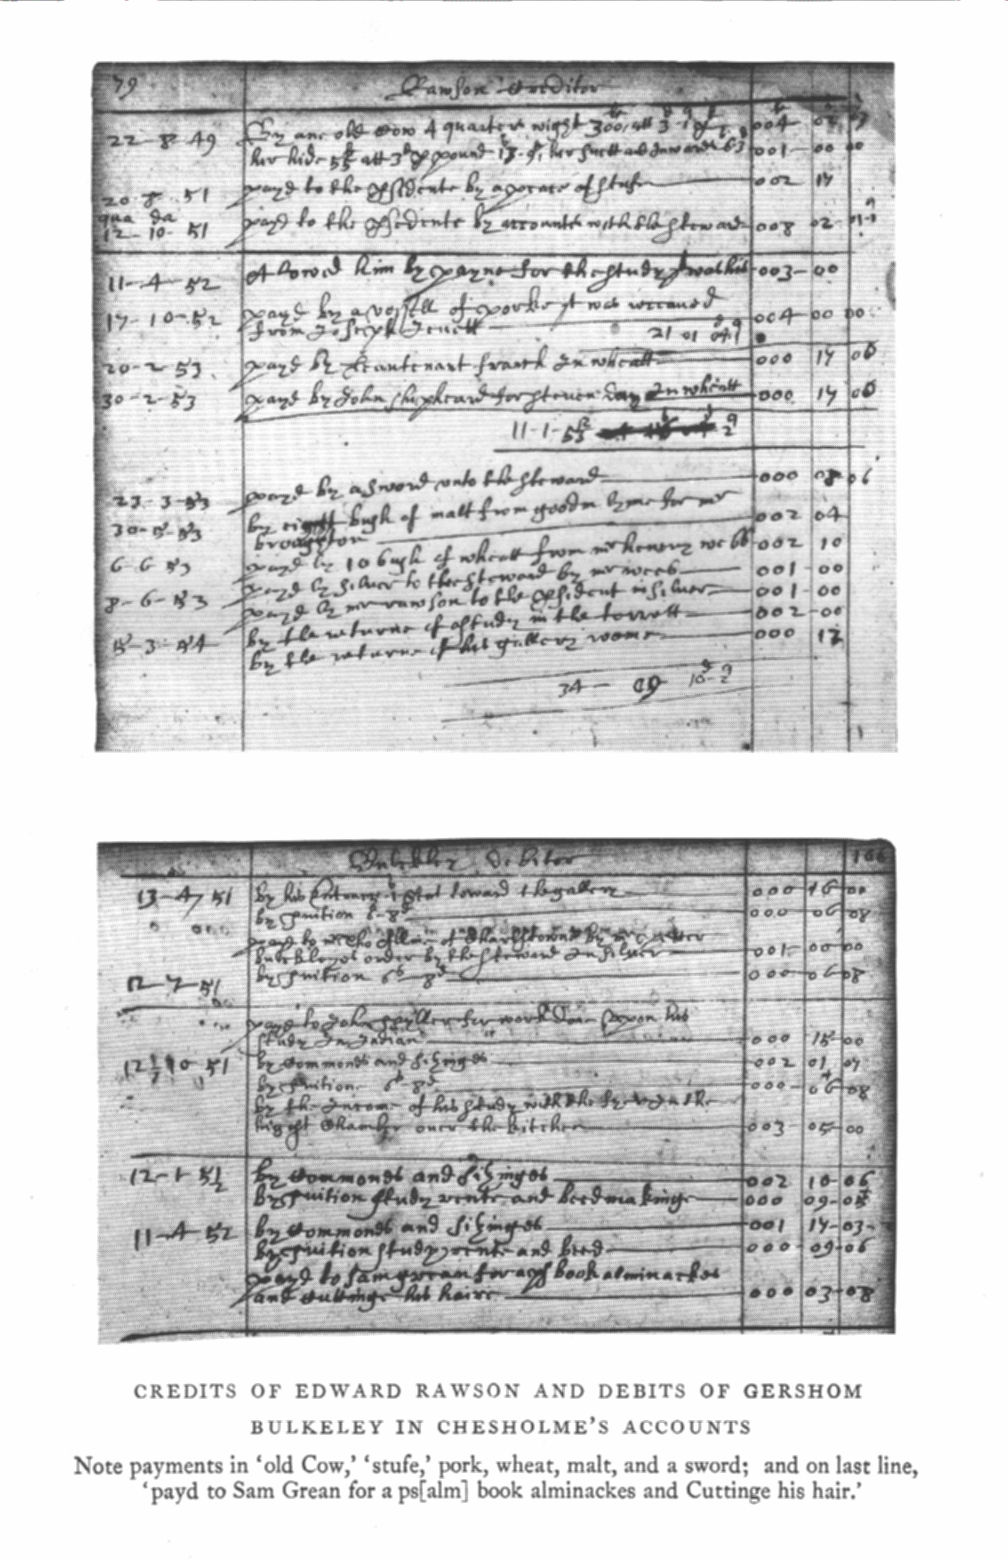 79 Rawson Creditor
22-8-49 By one old Cow 4 quarters wight 300 att 3 004
her hide att 3 pound her suett 001-00 00
20-8-51 payd to the psedente by a peace of stufe 002 17
qua da
12-10-51 payd to the psedente by accounts with the steward 008 02
11-4-52 Alowed him by payne for the study 003-00
17-10-52 payd by a vessell of porke it was receaued
from Joseph Jewett 004 00 00
21 01
20-2-53 payd by Leautenant In wheatt 000 17 06
30-2-53 payd by John shepheard for steven Day In wheatt 000 17 06
11-1-53
23-3-53 payd by a sword unto the steward 000 08 06
30-5-53 by eight bush of malt from goodm for mr
002 04
6-6-53 payd by 10 bush of wheatt from mr henery webb 002 10
payd by silver to the steward by mr 001-00
8-6-53 payd by mr rawson to the psident in silver 001-00
by the returne of astudy in the torrett 002-00
5-3-54 by the returne of his gallery 000 12
34 - 09 10-2
Bulkeley Debitor 166
13-4-51 by his Entrance toward the gallery 000 16 00
by tuition 6-8 000 06 08
payd to of Charlstowne by
bulckleyes order by the steward In silver 001 00 00
12-7-51 by tuition 6s 8d 000 06 08
payd to John for work Don upon his
study In Indian 000 15 00
12 10 51 by Commones and sizinges 002 01 07
by tuition 6s 8d 000 06 08
by the Income of his study with the
Chamber over the kitchen 003 05 00
12-1-51 by Commones and sizinges 002 10-06
by tuition study rente and beedmakinge 000 09-05
11-4-52 by Commones and sizinges 001 14-03
by tuition study rente and beed 000 09-06
payd to Sam grean for a ps book alminackes
and Cuttinge his haire 000 03-08
CREDITS OF EDWARD RAWSON AND DEBITS OF GERSHOM
BULKELEY IN CHESHOLME'S ACCOUNTS
Note payments in ‘old Cow,’ ‘stufe,’ pork, wheat, malt, and a sword; and on last line,
‘payd to Sam Grean for a ps[alm] book alminackes and Cuttinge his hair.’